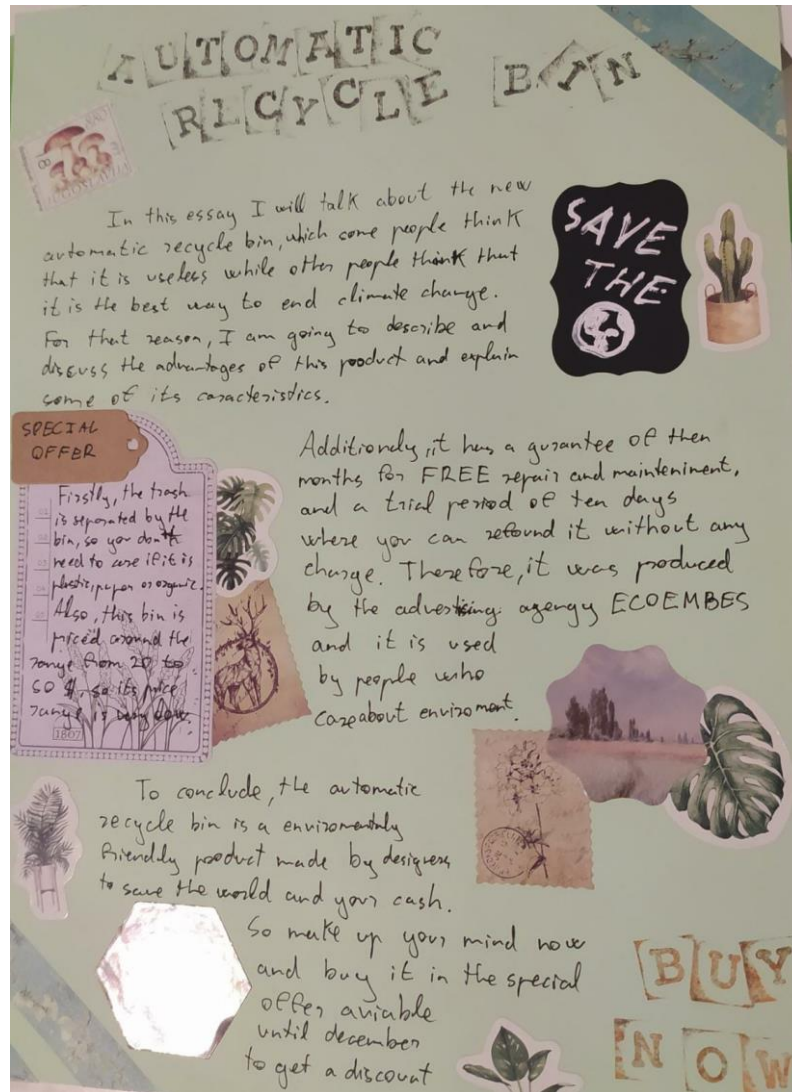 AUTOMATIC
RECYCLE BIN
JUGOSLAVIJA
In this essay I will talk about the new
automatic recycle bin, which come people think
that it is useless while other people think that
it is the best way to end climate change.
For that reason, I am going to describe and
discuss the advantages of this product and explain
some of its caracteristics.
SAVE
THE
SPECIAL
OFFER
Firstly, the trash
is separated by the
bin, so you don't
need to care if it is
plastic, paper or organic.
Also, this bin is
priced around the
range from 20 to
60 $, so its price
range is very low.
1807
Additionely, it has a gurantee of then
months for FREE repair and mainteniment,
and a trial period of ten days
where you can refound it without any
charge. Therefore, it was produced
by the advertising agengy ECOEMBES
and it is used
by people who
care about enviroment.
To conclude, the automatic
recycle bin is a enviromently
friendly product made by designers
to save the world and your cash.
So make up your mind now
and buy it in the special
offer aviable
until december
to get a discount
BUY
NOW